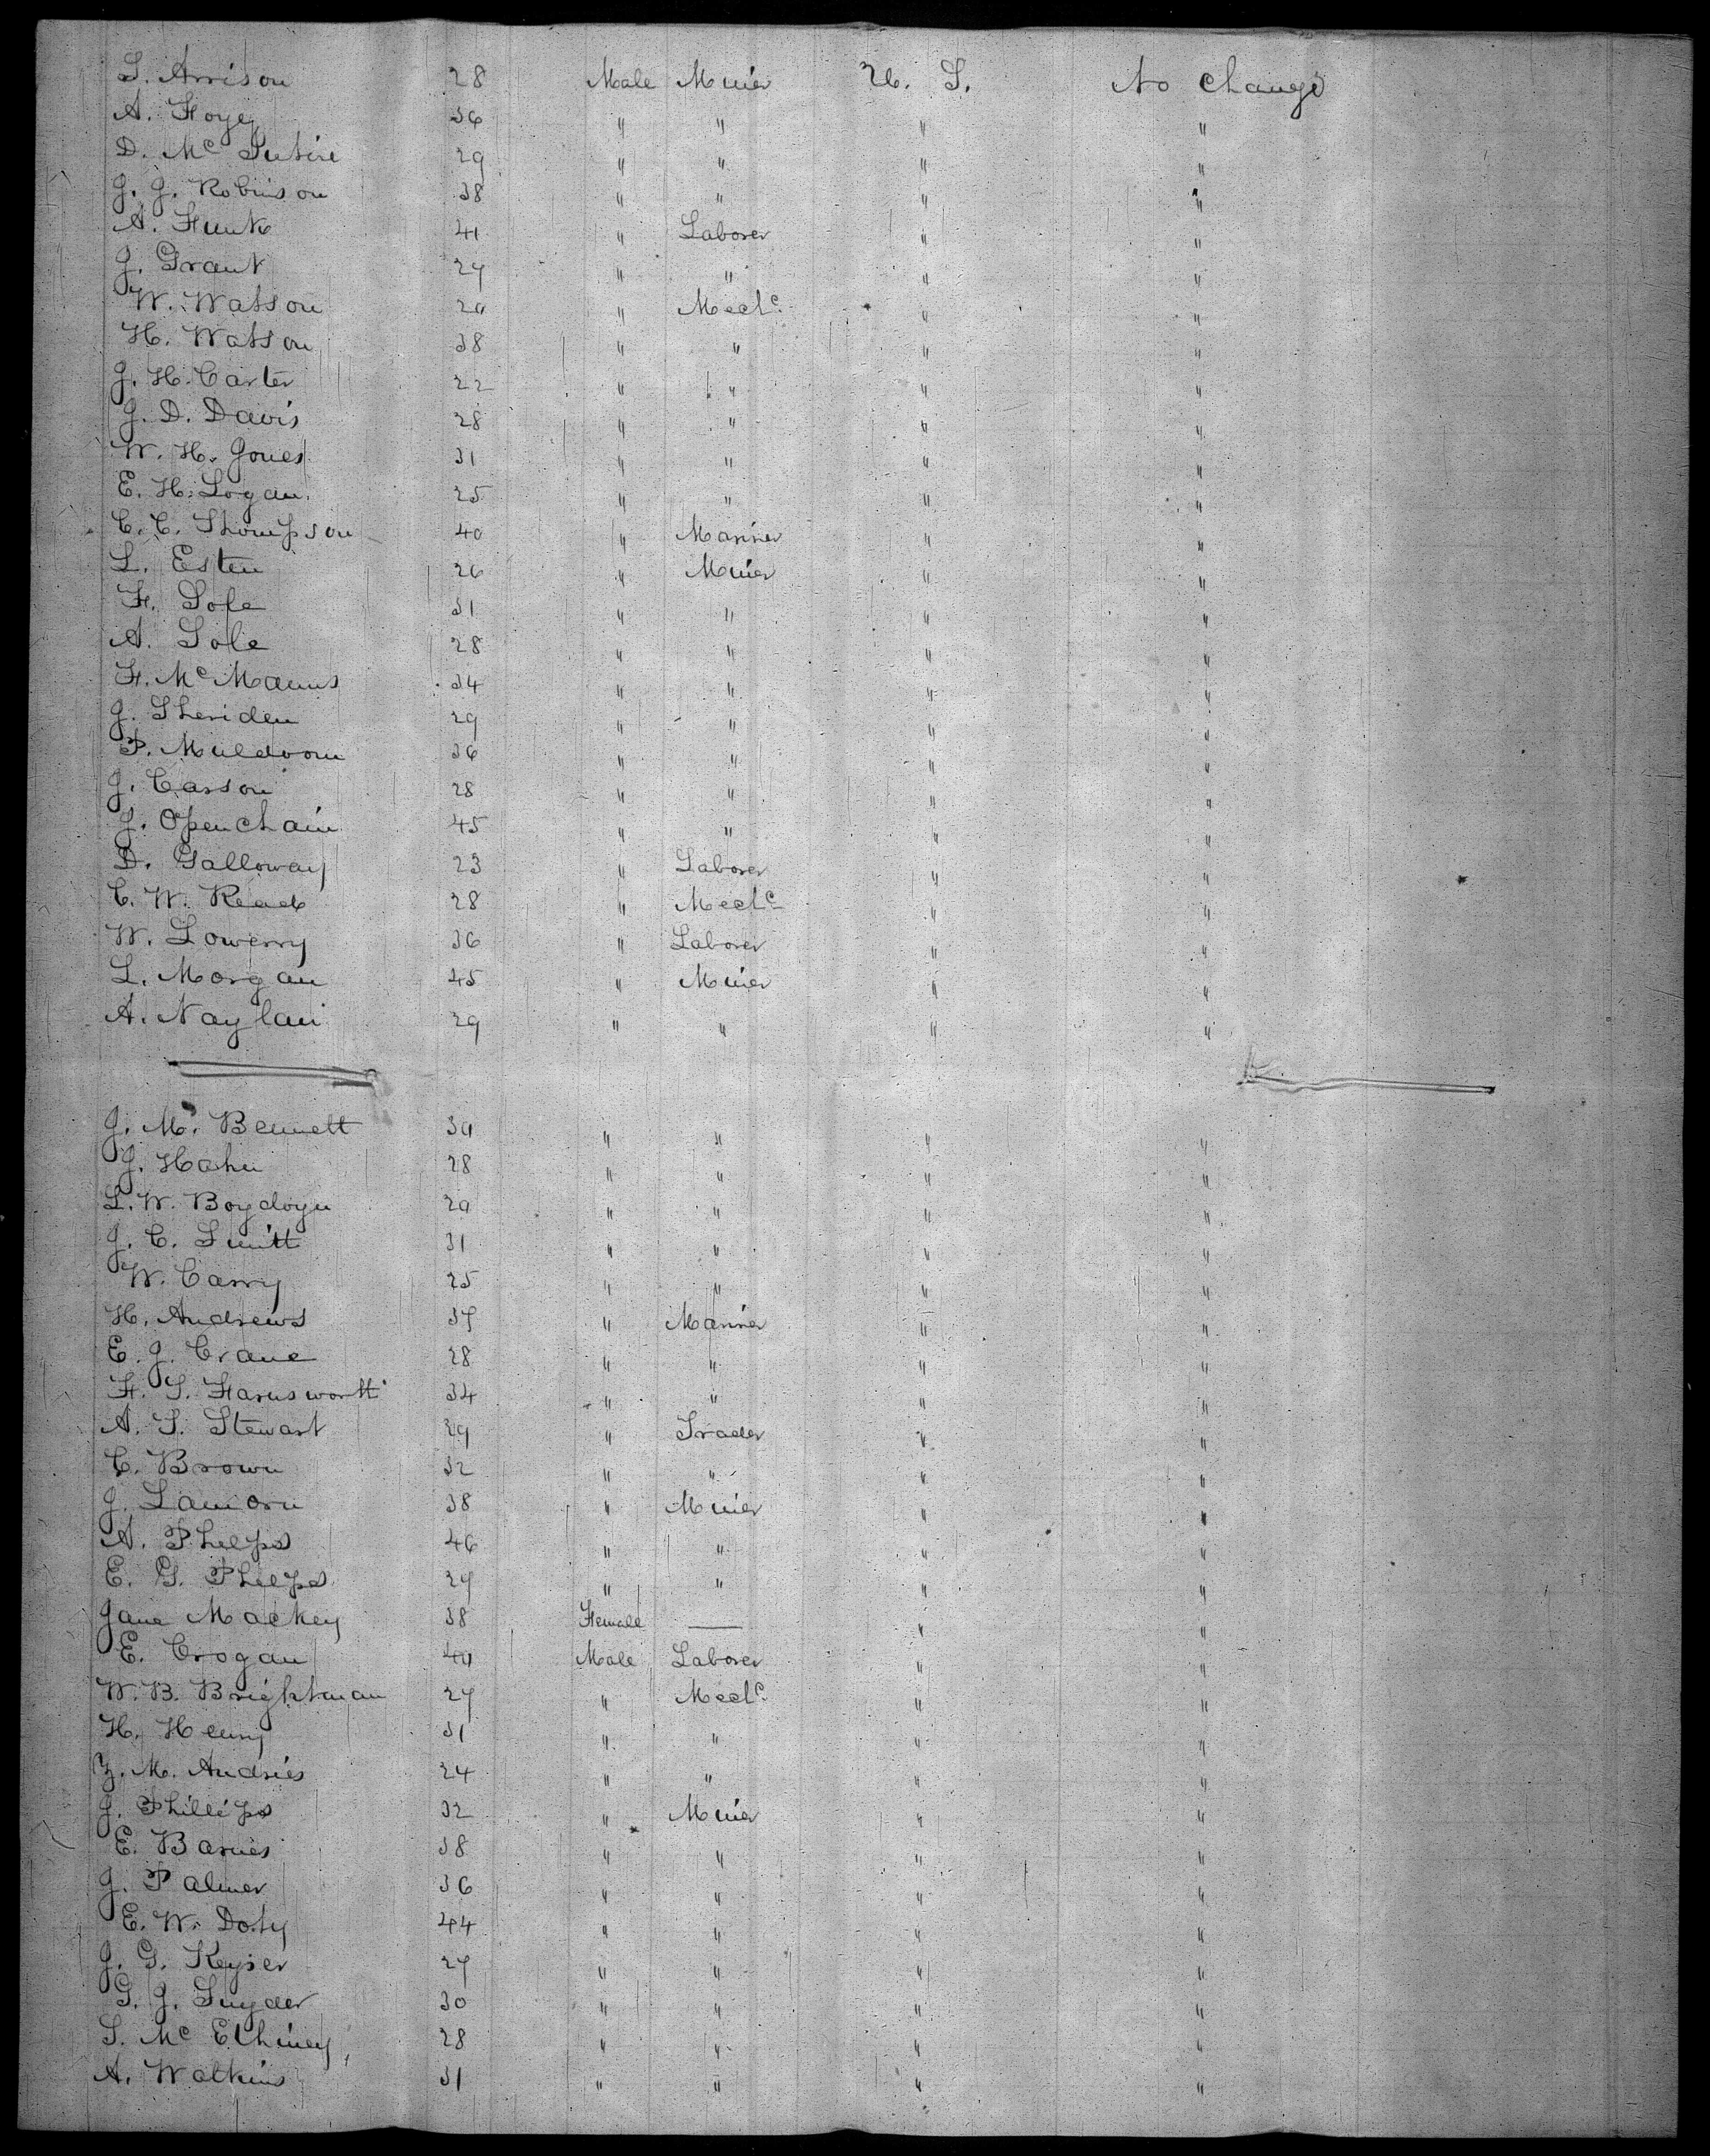 S. Arrison 28 Male Miner U. S. No Change
A. Foye 36 " " " "
D. Mc Intire 29 " " " "
J. J. Robinson 38 " " " "
A. Funk 41 " Laborer " "
J. Grant 27 " " " "
W. Watson 20 " Mechc " "
H. Watson 38 " " " "
J. H. Carter 22 " " " "
J. D. Davis 28 " " " "
W. H. Jones 31 " " " "
E. H. Logan 25 " " " "
C. C. Thompson 40 " Mariner " "
L. Esten 26 " Miner " "
F. Sole 31 " " " "
A. Sole 28 " " " "
F. Mc Manus 34 " " " "
J. Sheriden 29 " " " "
P. Muldoon 36 " " " "
J. Casson 28 " " " "
J. Openchain 45 " " " "
D. Galloway 23 " Laborer " "
C. W. Read 28 " Mechc " "
W. Lowerry 36 " Laborer " "
L. Morgan 45 " Miner " "
A. Naylan 29 " " " "
J. M. Bennett 30 " " " "
J. Hahn 28 " " " "
L. W. Boydoyn 20 " " " "
J. C. Smith 31 " " " "
W. Carry 25 " " " "
H. Andrews 37 " Mariner " "
E. J. Crane 28 " " " "
F. S. Farnsworth 34 " " " "
A. S. Stewart 39 " Trader " "
C. Brown 32 " " " "
J. Lamorn 38 " Miner " "
A. Phelps 46 " " " "
E. G. Phelps 27 " " " "
Jane Mackey 38 Female — " "
E. Crogan 40 Male Laborer " "
W. B. Brightman 27 " Mechc " "
H. Henry 31 " " " "
Z. M. Andries 24 " " " "
J. Phillips 32 " Miner " "
E. Barnes 38 " " " "
J. Palmer 36 " " " "
E. W. Doty 44 " " " "
J. G. Keyser 27 " " " "
G. J. Snyder 30 " " " "
S. Mc Elhiney 28 " " " "
A. Watkins 31 " " " "